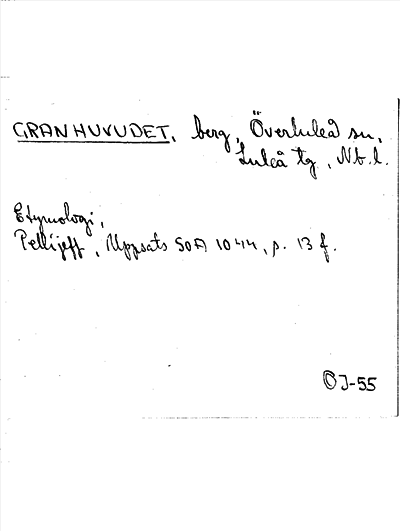 GRANHUVUDET, berg, Överluleå sn,
Luleå tg, Nb.l.
Etymologi,
Pellijeff, Uppsats SOA 1044, p. 13 f.
ÖJ-55